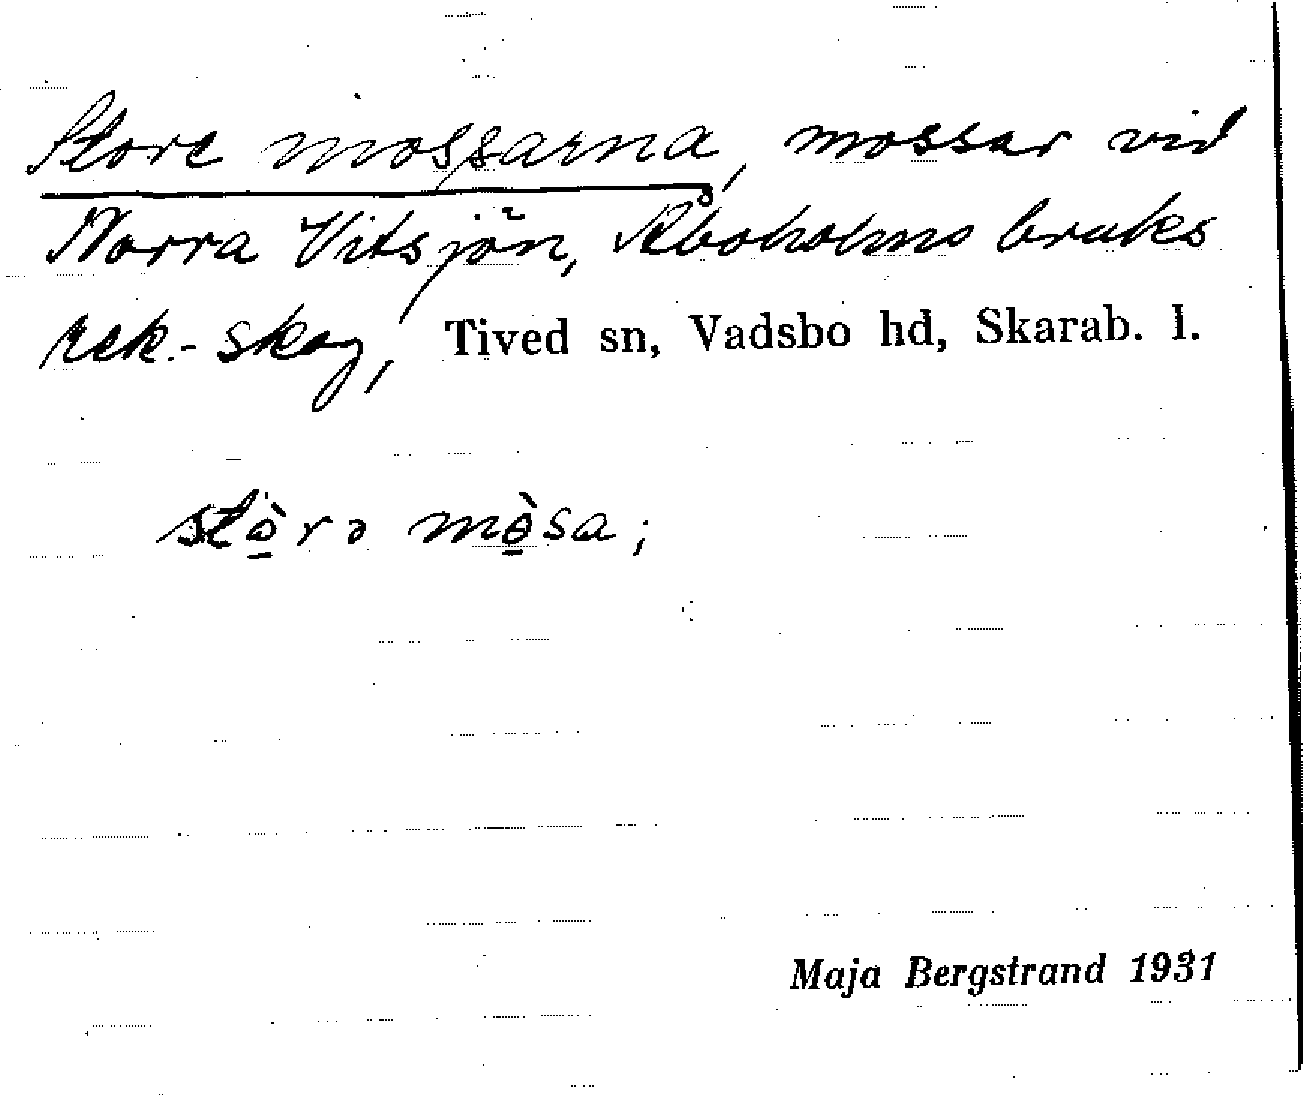 Store mossarna, mossar vid
Norra Vitsjön, Åboholms bruks
rek.-skog, Tived sn, Vadsbo hd, Skarab. l.
stò̠rə mò̠sa;
Maja Bergstrand 1931